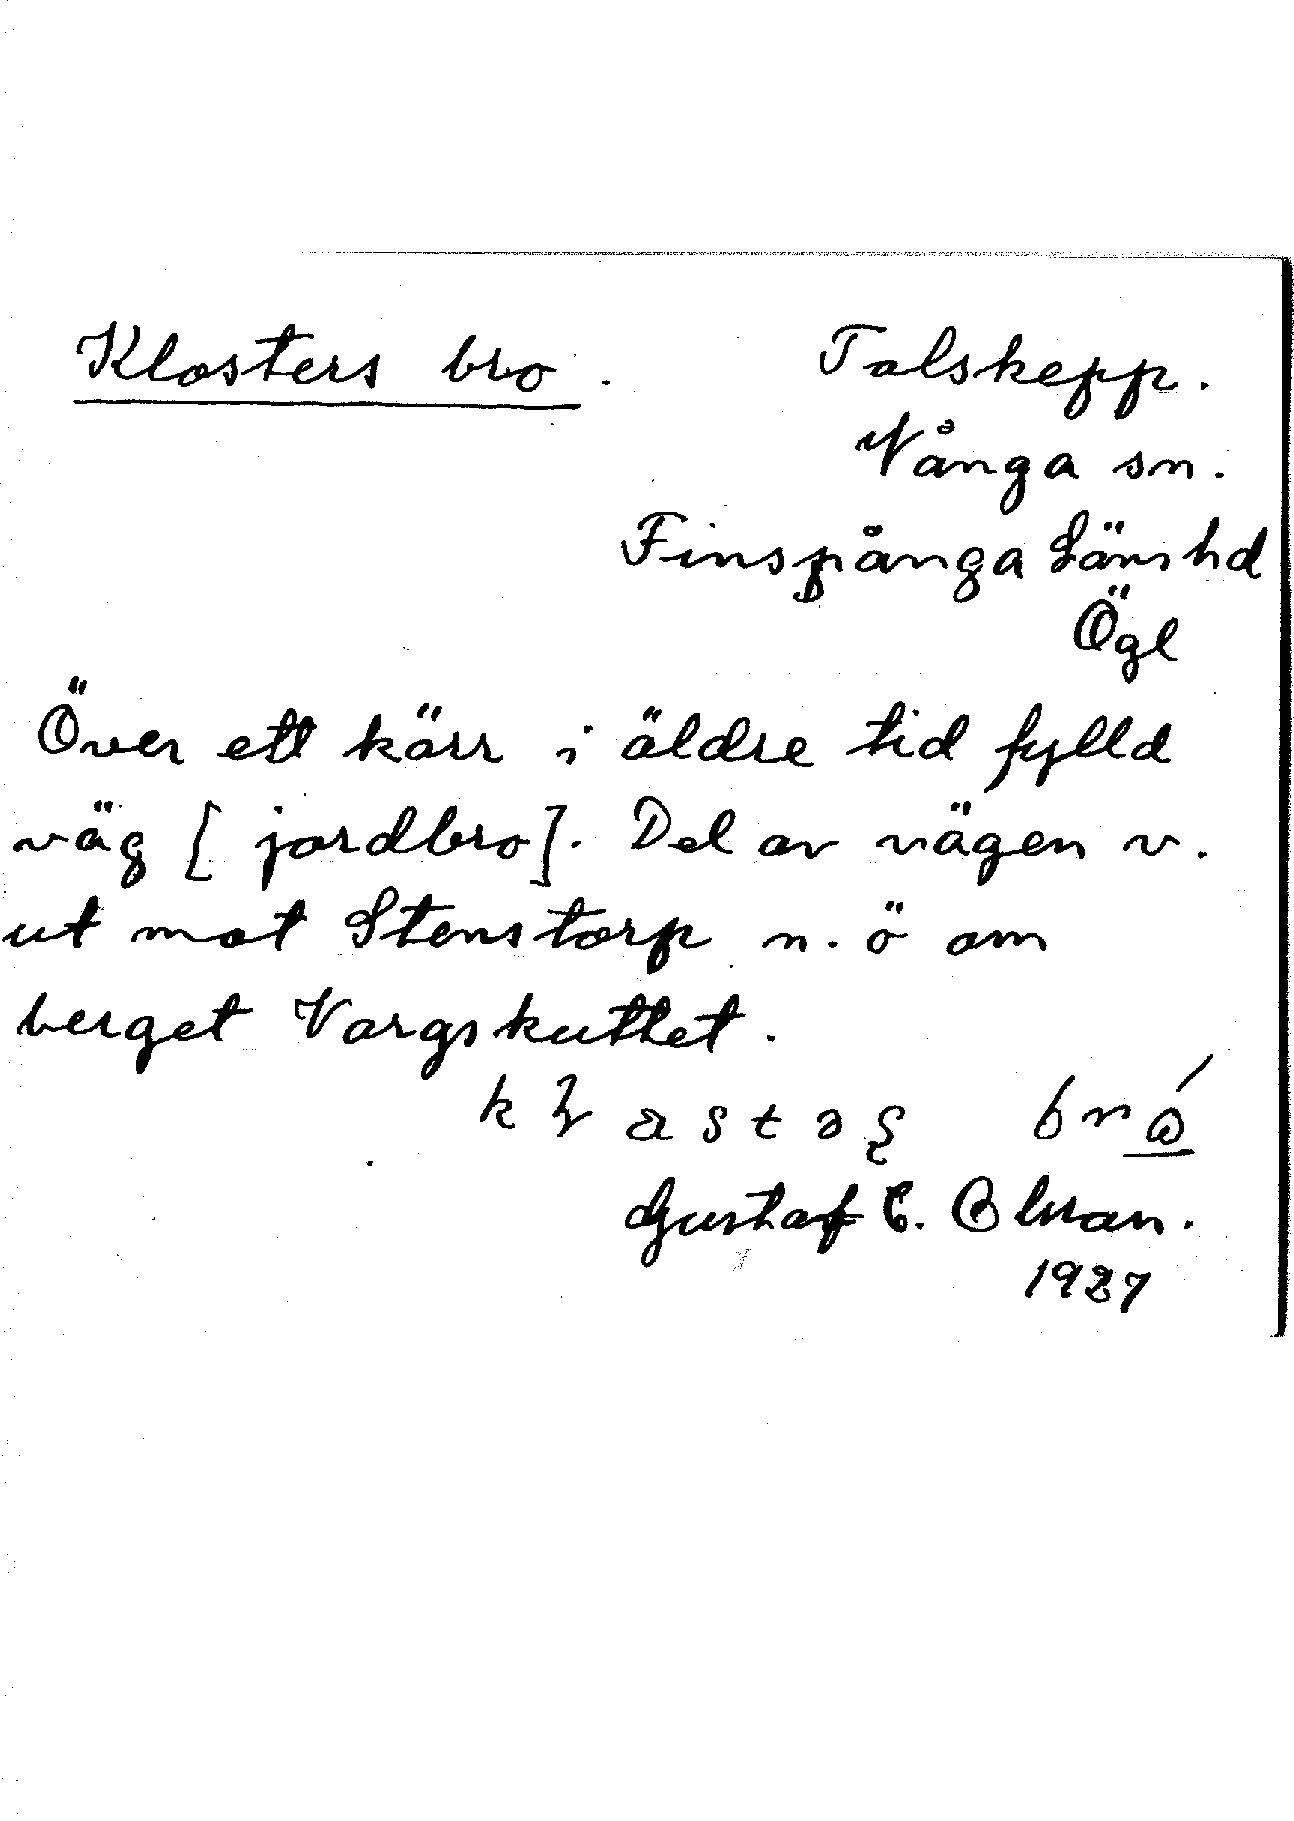 Klosters bro. Tolskepp.
Vånga sn.
Finspånga Läns hd
Ögl
Över ett kärr i äldre tid fylld
väg [jordbro]. Del av vägen v.
ut mot Stenstorp n. ö om
berget Vargskuttet.
Gustaf E. Olsson.
1927